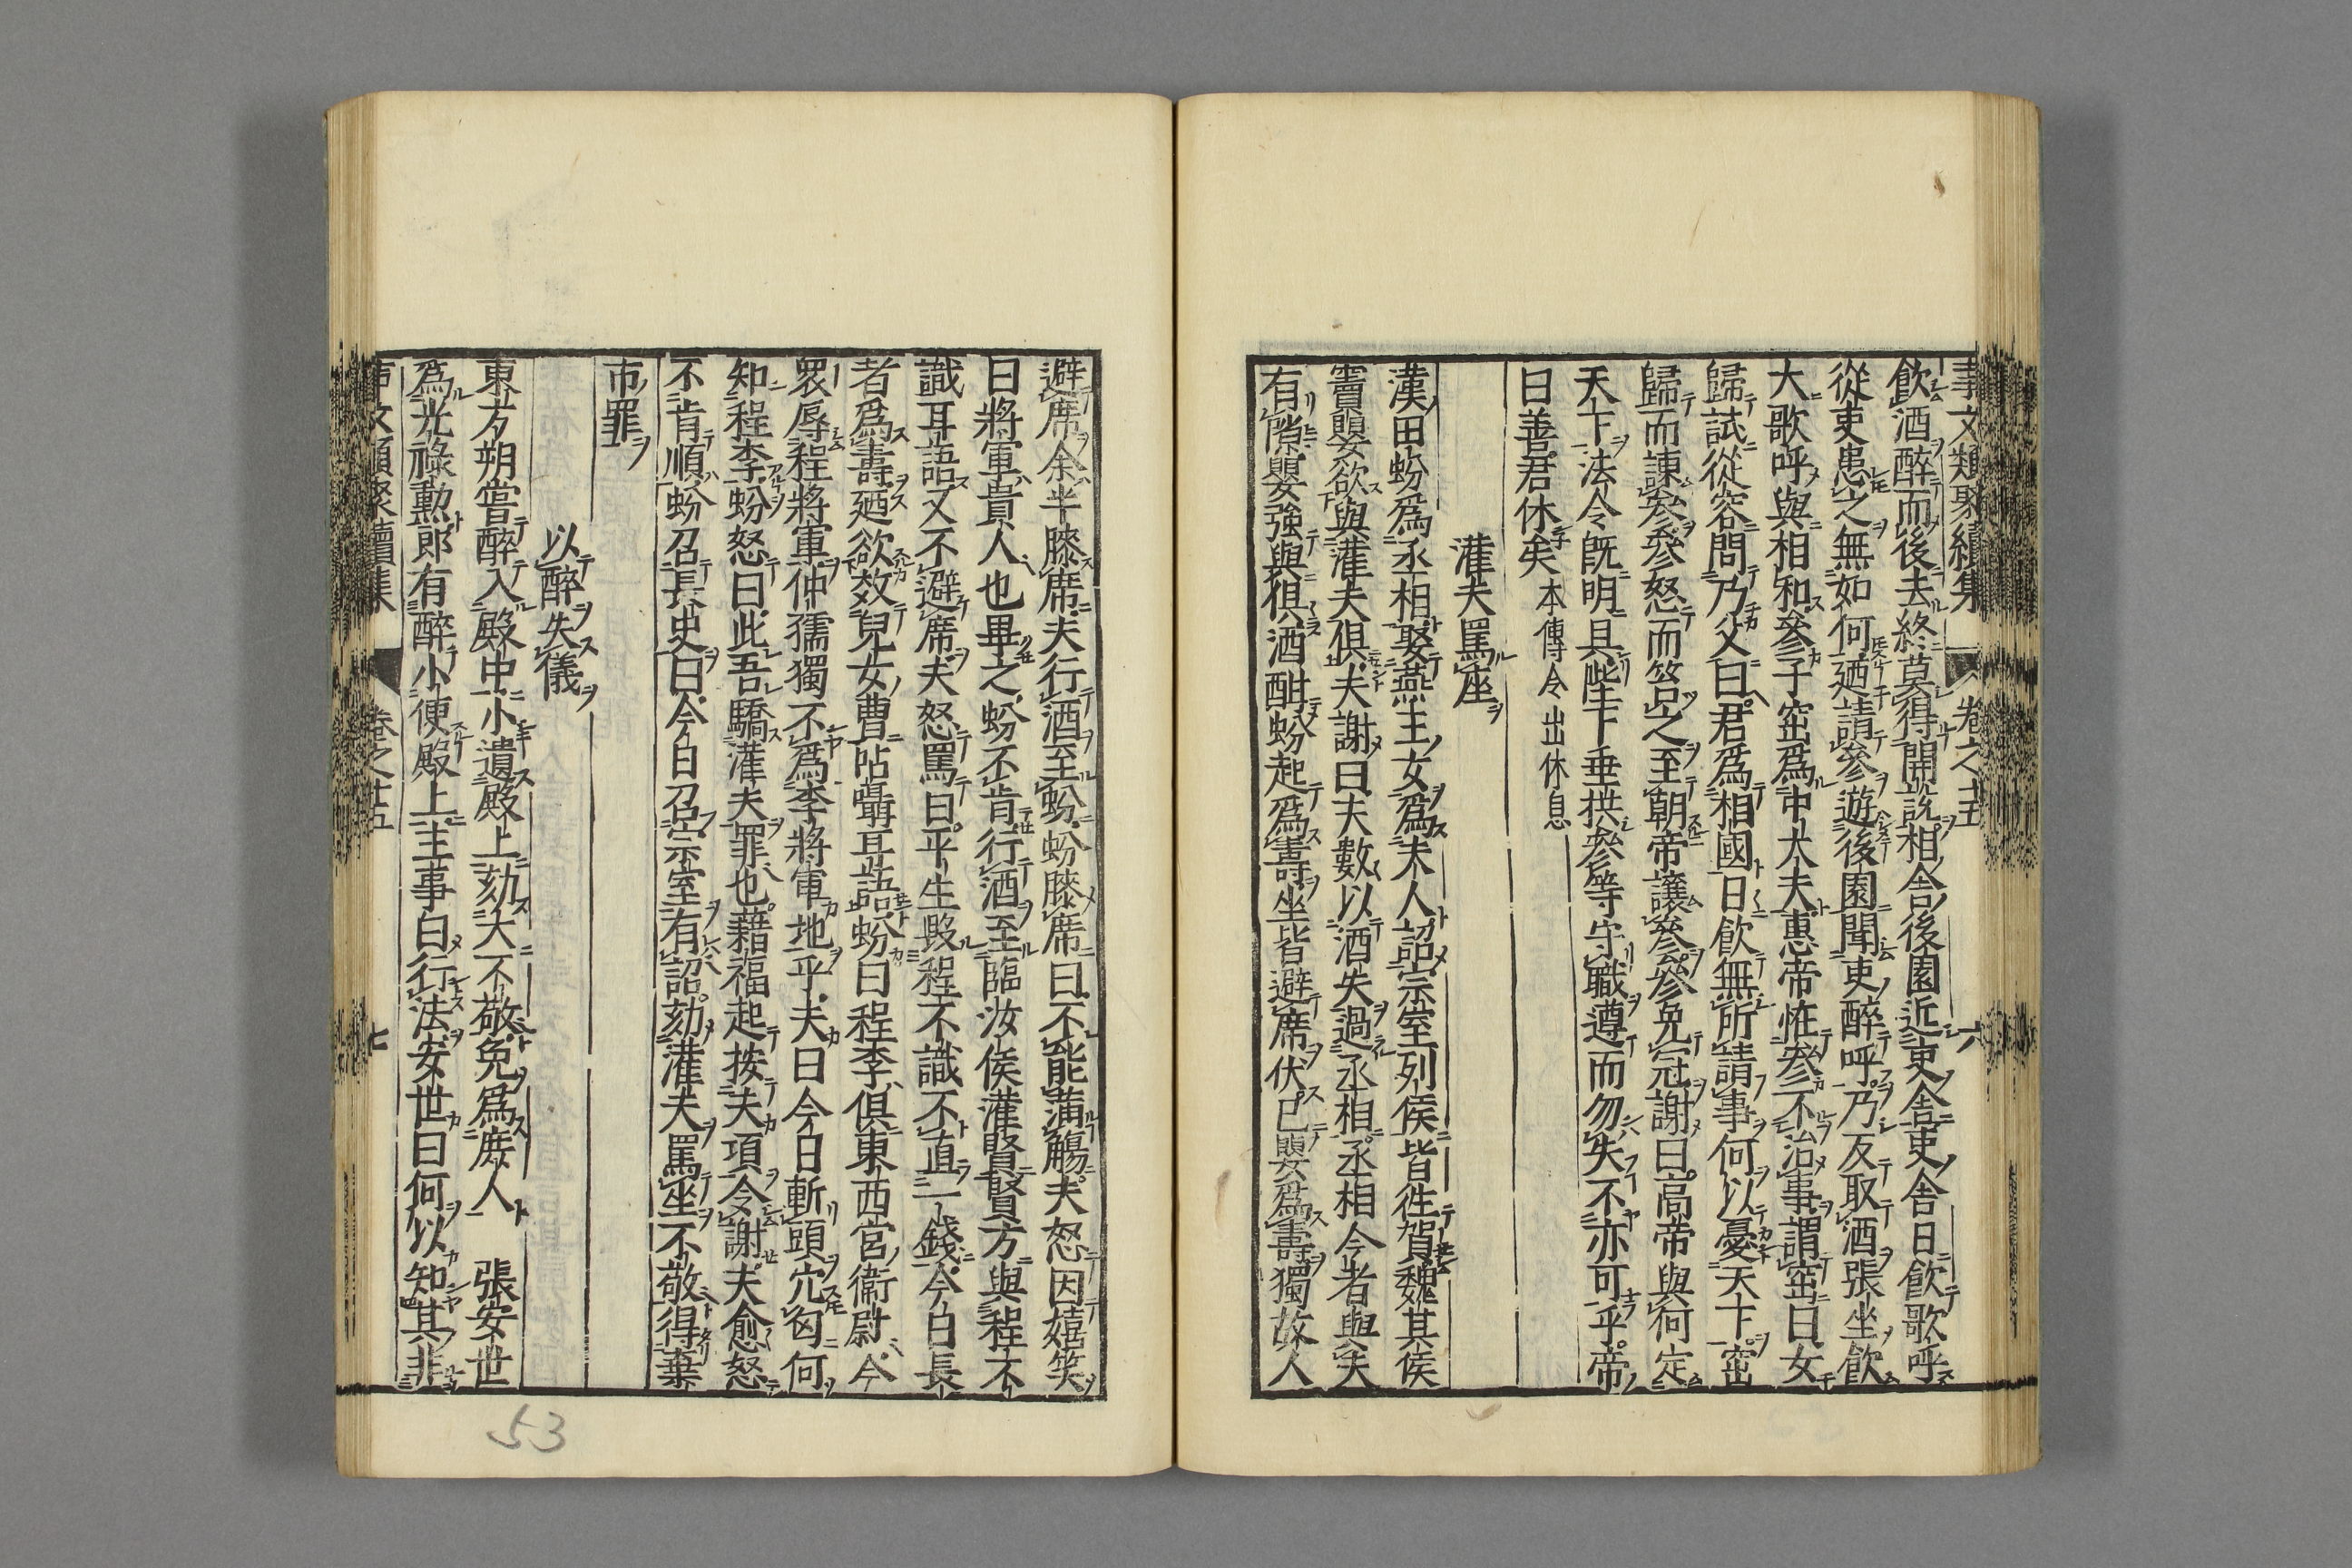 事文類聚續集 卷之十五 六
飲酒醉而後去終莫得開說相舍後園近吏舍吏舍日飲歌呼
從吏患之無如何廼請參遊後園聞吏醉呼乃反取酒張坐飲
大歌呼與相和參子窋爲中大夫惠帝恠參不治事謂窋曰女
歸試從容問乃父曰君爲相國日飲無所請事何以憂天下窋
歸而諫參參怒而笞之至朝帝讓參參免冠謝曰高帝與何定
天下法令既明具陛下垂拱參等守職遵而勿失不亦可乎帝
曰善君休矣本傳令出休息
灌夫罵座
漢田蚡爲丞相娶燕王女爲夫人詔宗室列侯皆徃賀魏其侯
竇嬰欲與灌夫俱夫謝曰夫數以酒失過丞相丞相今者與夫
有隙嬰強與俱酒酣蚡起爲壽坐皆避席伏已嬰爲壽獨故人
避席余半膝席夫行酒至蚡蚡膝席曰不能滿觴夫怒因嬉笑
曰將軍貴人也畢之蚡不肯行酒至臨汝侯灌賢賢方與程不
識耳語又不避席夫怒罵曰平生毀程不識不直一錢今日長
者爲壽廼欲效兒女曹呫囁耳語蚡曰程李俱東西宮衞尉今
衆辱程將軍仲孺獨不爲李將軍地乎夫曰今日斬頭穴匈何
知程李蚡怒曰此吾驕灌夫罪也藉福起按夫項令謝夫愈怒
不肯順蚡召長史曰今日召宗室有詔劾灌夫罵坐不敬得棄
市罪
以醉失儀
東方朔嘗醉入殿中小遺殿上劾大不敬免爲庶人 張安世
爲光祿勳郎有醉小便殿上主事白行法安世曰何以知其非
事文類聚續集 卷之十五 七
53